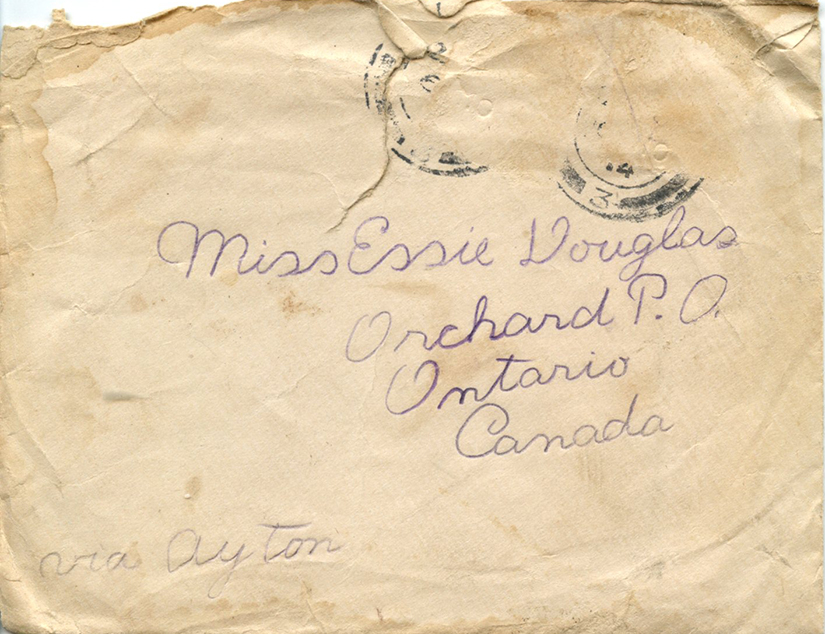 14
3
Miss Essie Douglas
Orchard P. O.
Ontario
Canada
via Ayton